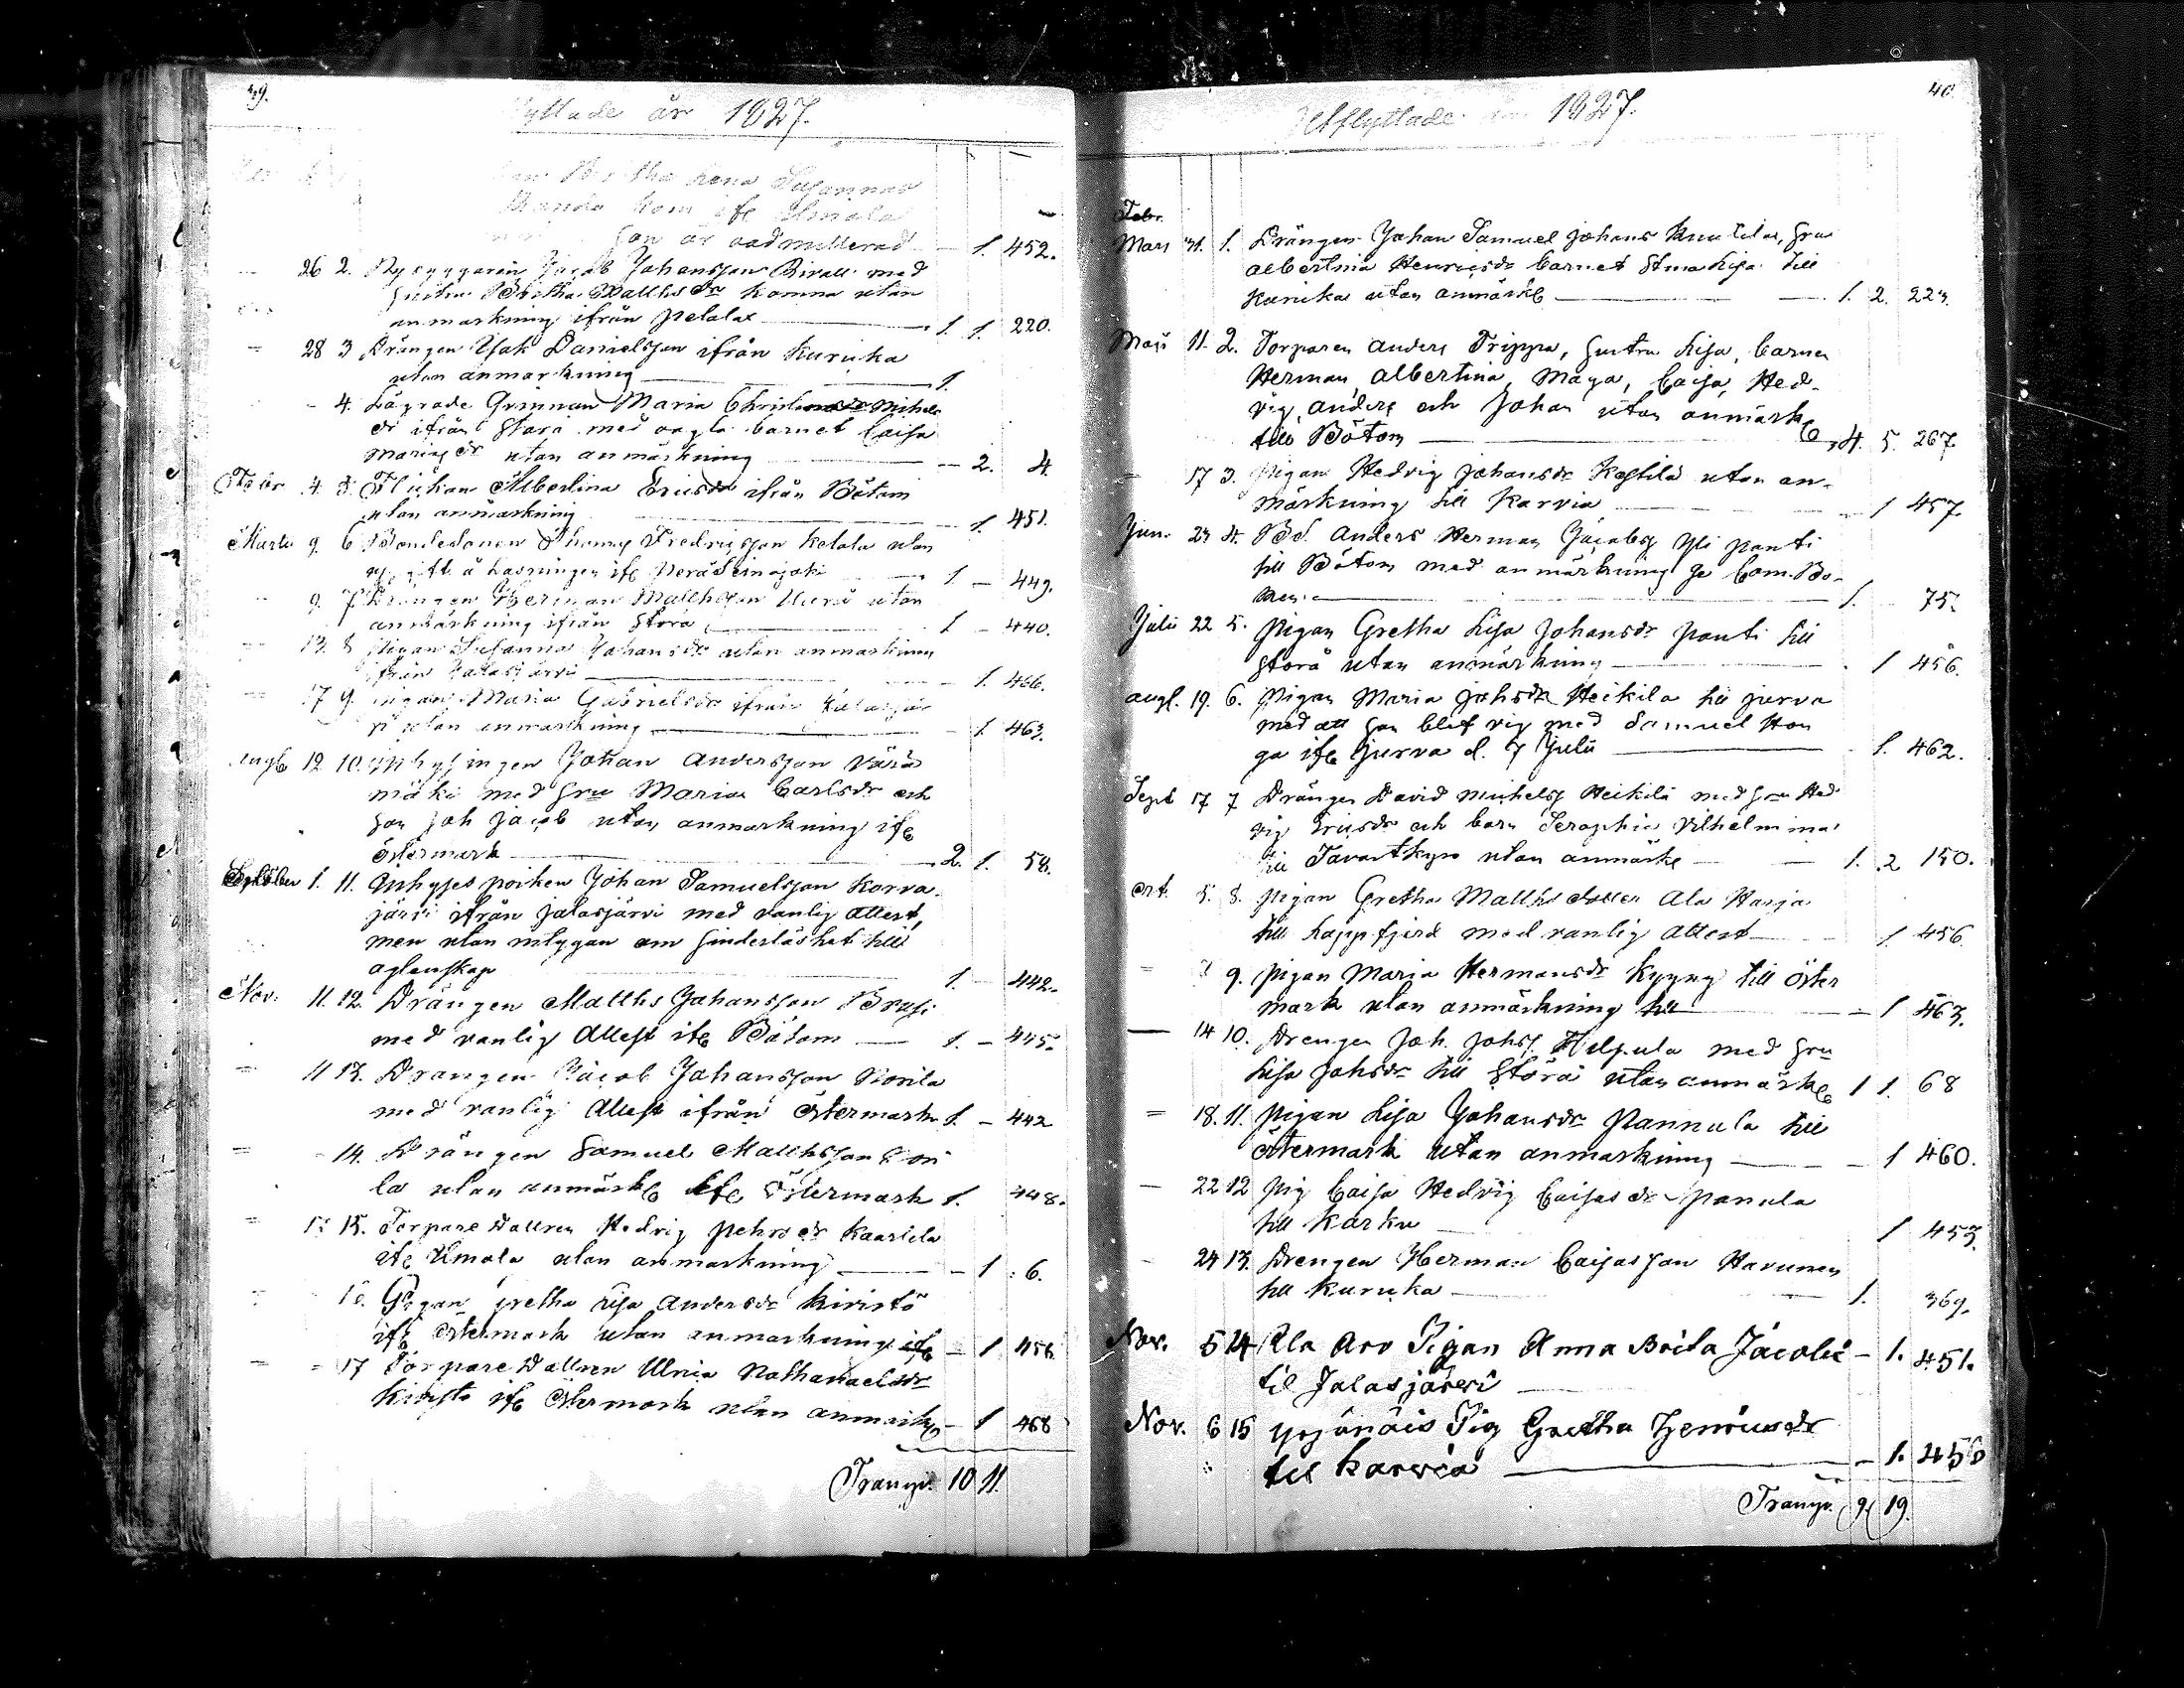 39.
flyttade år 1827.
Bertha Lena Susannas
kom ifr Ilmola
son är admitterad — 1. 452.
26 2. Nybyggaren Jacob Johansson Rivall med
hustru Britha Matthsdr komna utan
anmärkning ifrån Pelalax — 1. 1. 220.
28 3 Drängen Isak Danielsson ifrån Kurikka
utan anmärkning — 1.
4. Lägrade Qvinnan Maria Michels
dr ifrån Storå med oägta barnet Caisa
Mariasdr utan anmärkning — 2. 4
Febr 4. 5. Flickan Albertina Ericsdr ifrån Bötom
utan anmärkning — 1. 451.
Martii 9. 6 Bondesonen Thomas Fredricsson Kelala utan
ifr Peräseinäjoki — 1 — 449.
9. 7 Drängen Herman Matthsson utan
anmärkning ifrån Storå — 1 — 440.
13. 8 Pigan Susanna Johansdr utan anmärkning
ifrån Jalasjärvi — 1. 466.
17 9. Pigan Maria Gabrielsdr ifrån Jalasjär
vi utan anmärkning — 1 463.
Augt 12 10. Inhysingen Johan Andersson
mäki med hru Maria Carlsdr och
son Joh Jacob utan anmärkning ifr
Östermark — 2. 1. 58.
1. 11. Inhyses poiken Johan Samuelsson Korva
järvi ifrån Jalasjärvi med vanlig attest,
men utan intygan om hinderlöshet till
äglenskap — 1. — 442.
Nov. 11. 12. Drängen Matths Johansson
med vanlig attest ifr Bötom — 1. — 445.
11 13. Drängen Jacob Johansson Norila
med vanlig attest ifrån Östermark 1. — 442
14. Drängen Samuel Matthsson
la utan anmärk ifr Östermark 1. 448.
15. Torpare Dottren Hedvig Pehrsdr Kaarlela
ifr Ilmola utan anmärkning — 1 6.
16. Pigan Gretha Lisa Andersdr Kivistö
ifr Östermark utan anmärkning ifr — 1 456
17 Torpare Dottren Ulrica Nathanaelsdr
Kivistö ifr Östermark utan anmärk — 1 468
Transp. 10 11.
40.
Utflyttade år 1827.
Febr.
Mars 31. 1. Drängen Johan Samuel Johans Knutila, hru
Albertina Henricsdr barnet Stina Lisa till
Kurika utan anmärk — 1. 2. 223.
Maji 11. 2. Torparen Anders Trippa, hustru Lisa, barnen
Herman, Albertina, Maja, Caisa, Hed-
vig, Anders och Johan utan anmärk
till Bötom — 4. 5. 267.
17 3. Pigan Hedvig Johansdr Kestilä utan an-
märkning till Karvia — 1 457.
Jun. 24 4. Bd. Anders Herman Jacobsson Yli Panti
till Bötom med anmärkning
— 1. 75.
Julii 22 5. Pigan Gretha Lisa Johansdr Panti till
Storå utan anmärkning — 1 456.
Augt. 19. 6. Pigan Maria Johsdr Heikila till Jurva
med att hon blef vig med Samuel Hon
ga ifr Jurva d. 7 Julii — 1. 462.
Sept 17 7 Drängen David Michelss Heikilä med hru Hed
vig Ericsdr och barn Seraphia Vilhelmina
till Tavastkyro utan anmärk — 1. 2 150.
Oct. 5. 8. Pigan Gretha Matths Dotter Ala Harja
till Lappfjerd med vanlig Attest — 1. 456.
9. Pigan Maria Hermansdr Kyyny till Öster
mark utan anmärkning till — 1 463.
14 10. Drengen Joh. Johss. Hilpula med hru
Lisa Johsdr till Storå utan anmärk 1 1. 68
18. 11. Pigan Lisa Johansdr Pannula till
Östermark utan anmärkning — 1 460.
22 12 Pig Caisa Hedvig Caisasdr Panula
till Karku — 1 453.
24 13. Drengen Herman Caisasson Havunen
till Kurika — 1. 369.
Nov. 5 14 Ala Aro Pigan Anna Brita Jacobsd — 1. 451.
til Jalasjärvi
Nov. 6 15 Yrjänäis Pig Gretha Henricsdr
til Karvia — 1. 456
Transp. 9 19.